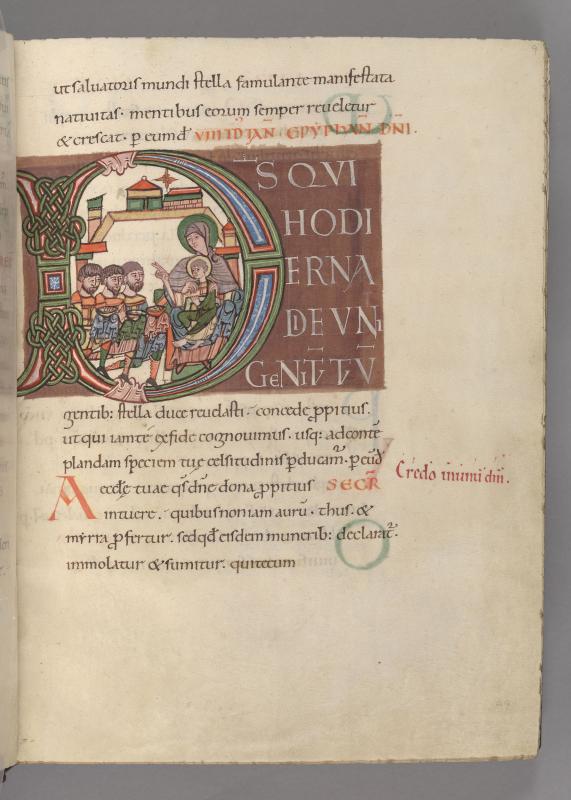 ut saluatoris mundi stella famulante manifestata
natiuitas. mentibus eorum semper reueletur
& crescat. p eumd VIII ID IAN EPYPHAN DNI.
DS QVI
HODI
ERNA
DIE VNI
GENITV TVV
gentib: stella duce reuelasti. concede ppitius.
ut qui iam te ex fide cognouimus. usq: ad conte
plandam speciem tuę celsitudinis pducam. p eud
Aecclę tuae qs dne dona ppitius SECR
intuere. quibus non iam auru. thus. &
myrra profertur. sed qd eisdem munerib: declarat.
immolatur & sumitur. qui tecum
Credo in unum dm.